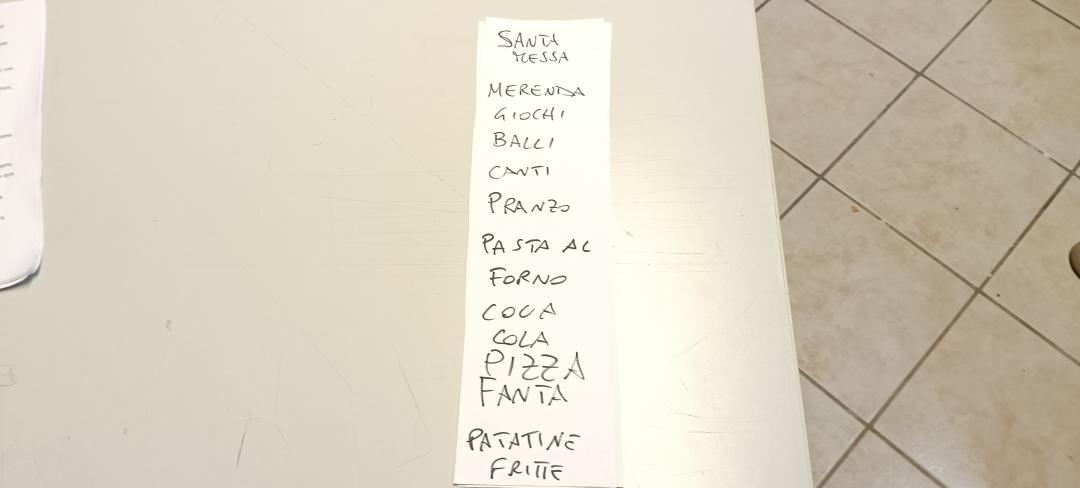 SANTA
MESSA
MERENDA
GIOCHI
BALLI
CANTI
PRANZO
PASTA AL
FORNO
COCA
COLA
PIZZA
FANTA
PATATINE
FRITTE